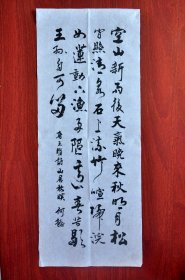 空山新雨後天氣晚來秋明月松
間照清泉石上流竹喧歸浣
女蓮動下漁舟隨意春芳歇
王孫自可留
王維詩山居秋暝 何